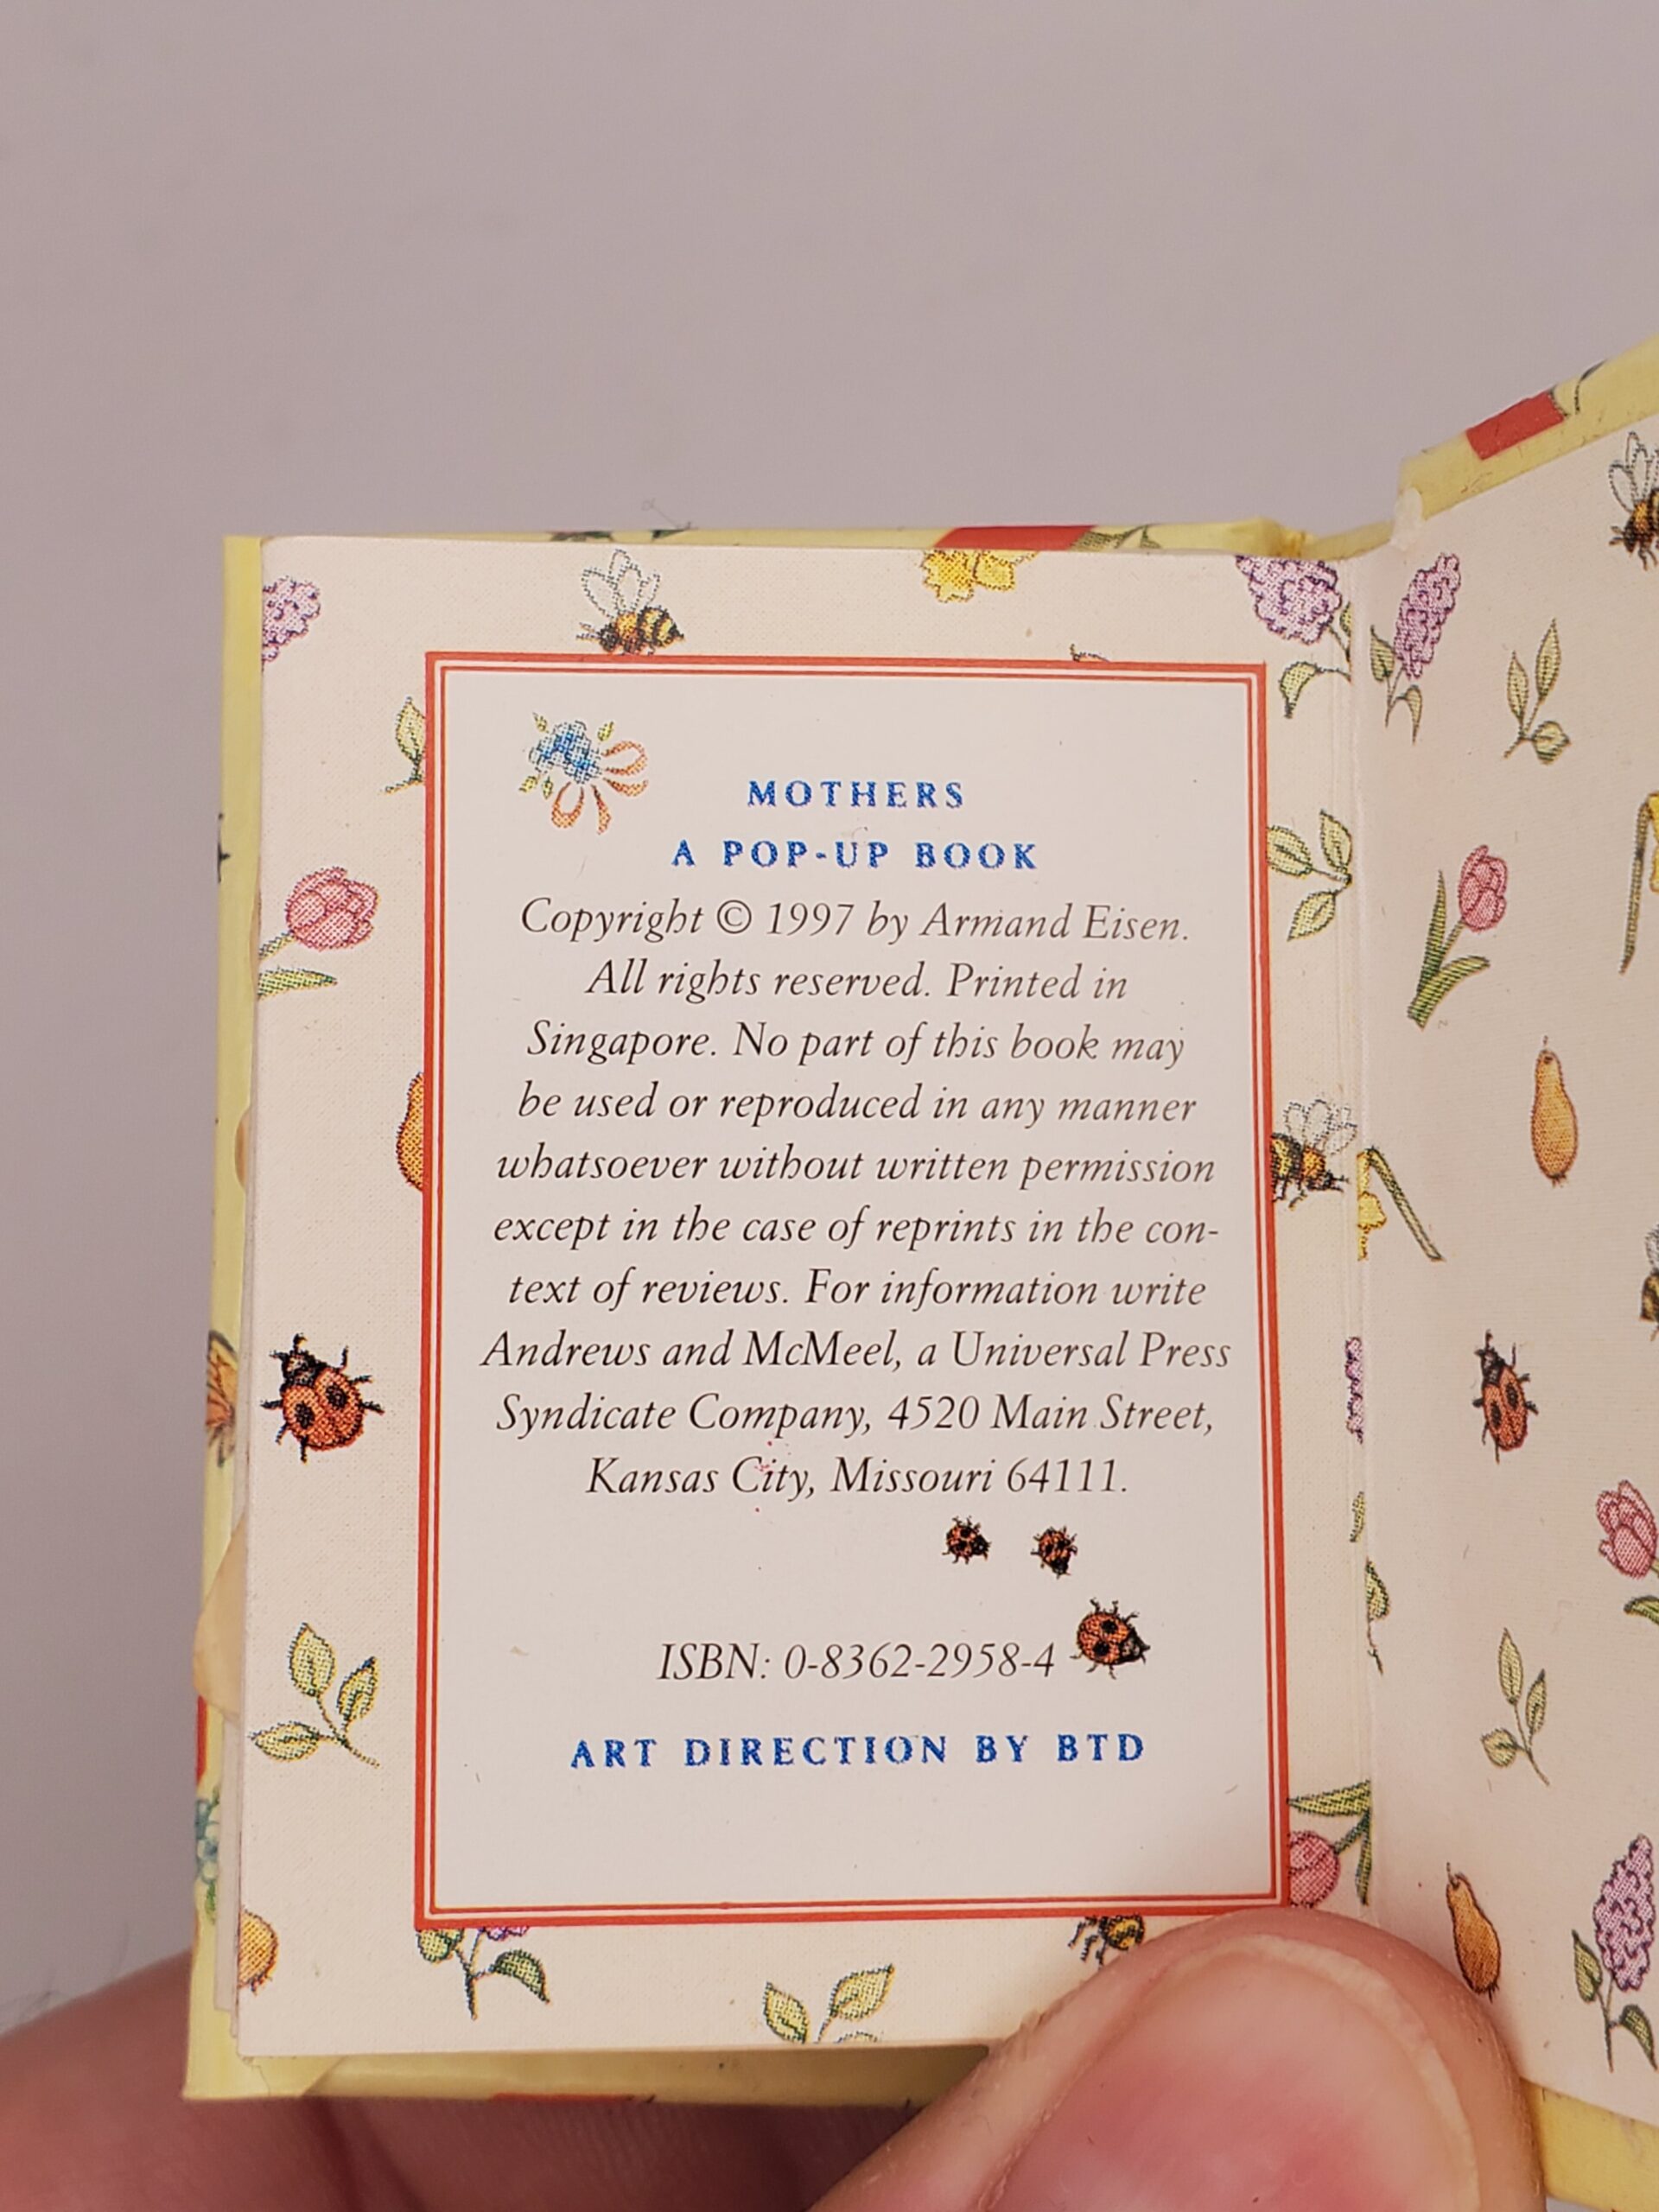 MOTHERS
A POP-UP BOOK
Copyright © 1997 by Armand Eisen.
All rights reserved. Printed in
Singapore. No part of this book may
be used or reproduced in any manner
whatsoever without written permission
except in the case of reprints in the con-
text of reviews. For information write
Andrews and McMeel, a Universal Press
Syndicate Company, 4520 Main Street,
Kansas City, Missouri 64111.
ISBN: 0-8362-2958-4
ART DIRECTION BY BTD